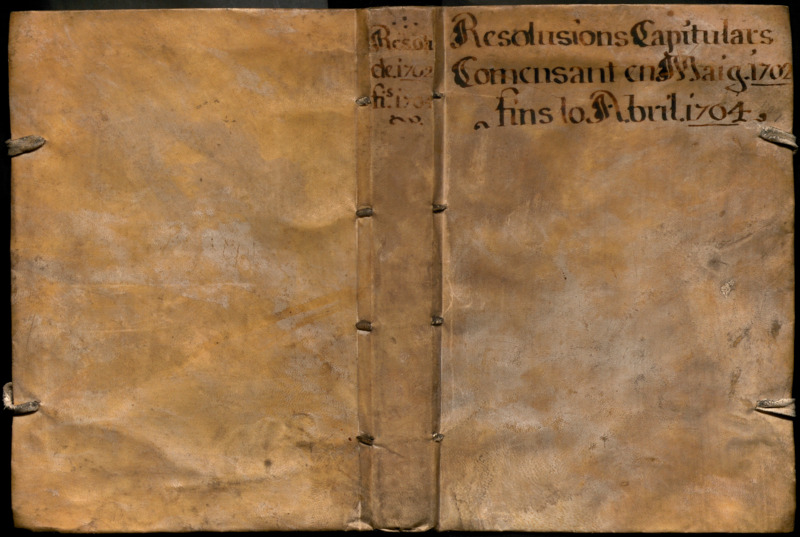 Resolu
de.1702
fi.ˢ 1704
Resolusions Capitulars
Comensant en Maig.1702
fins lo Abril.1704